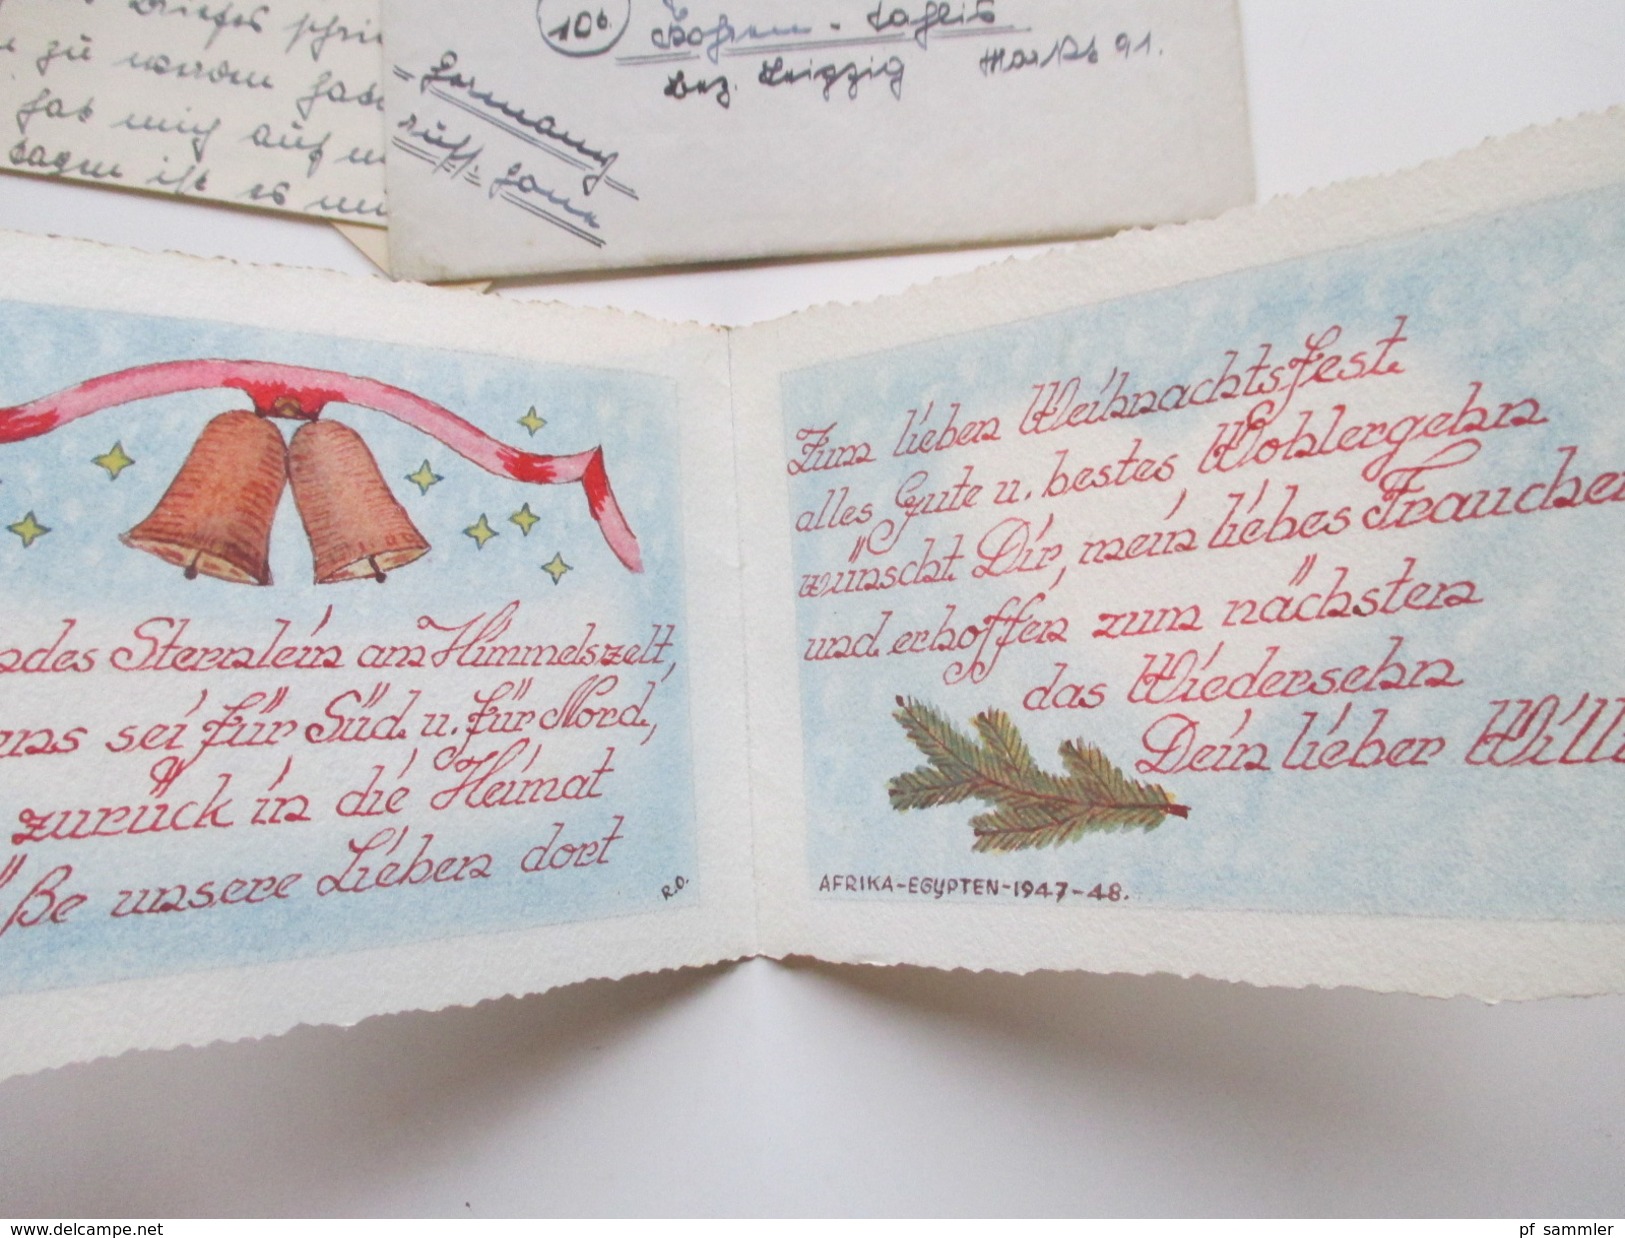 Briefes
zu werden
hat mich auf
sagen ist es
10b
Kohren - Sahlis
Bez. Leipzig Markt 91.
Germany
russ. Zone
des Sternlein am Himmelszelt,
ens sei für Süd. u. für Nord,
zurück in die Heimat
ße unsere Lieben dort
R.O.
Zum lieben Weihnachtsfest.
alles Gute u. bestes Wohlergehn
wünscht Dir, mein liebes Frauchen
und erhoffen zum nächsten
das Wiedersehn
Dein lieber Willi
AFRIKA-EGYPTEN-1947-48.
www.delcampe.net
pf_sammler